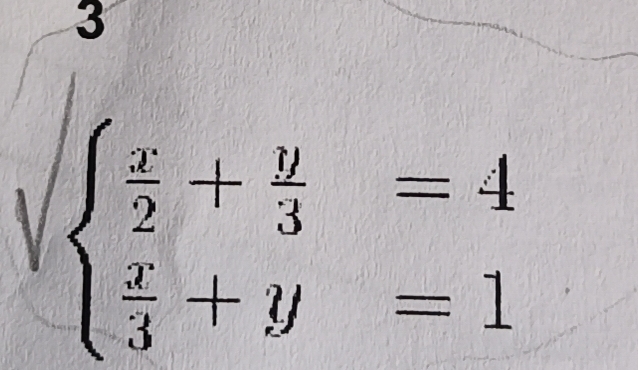 3
x/2 + y/3 = 4
x/3 + y = 1